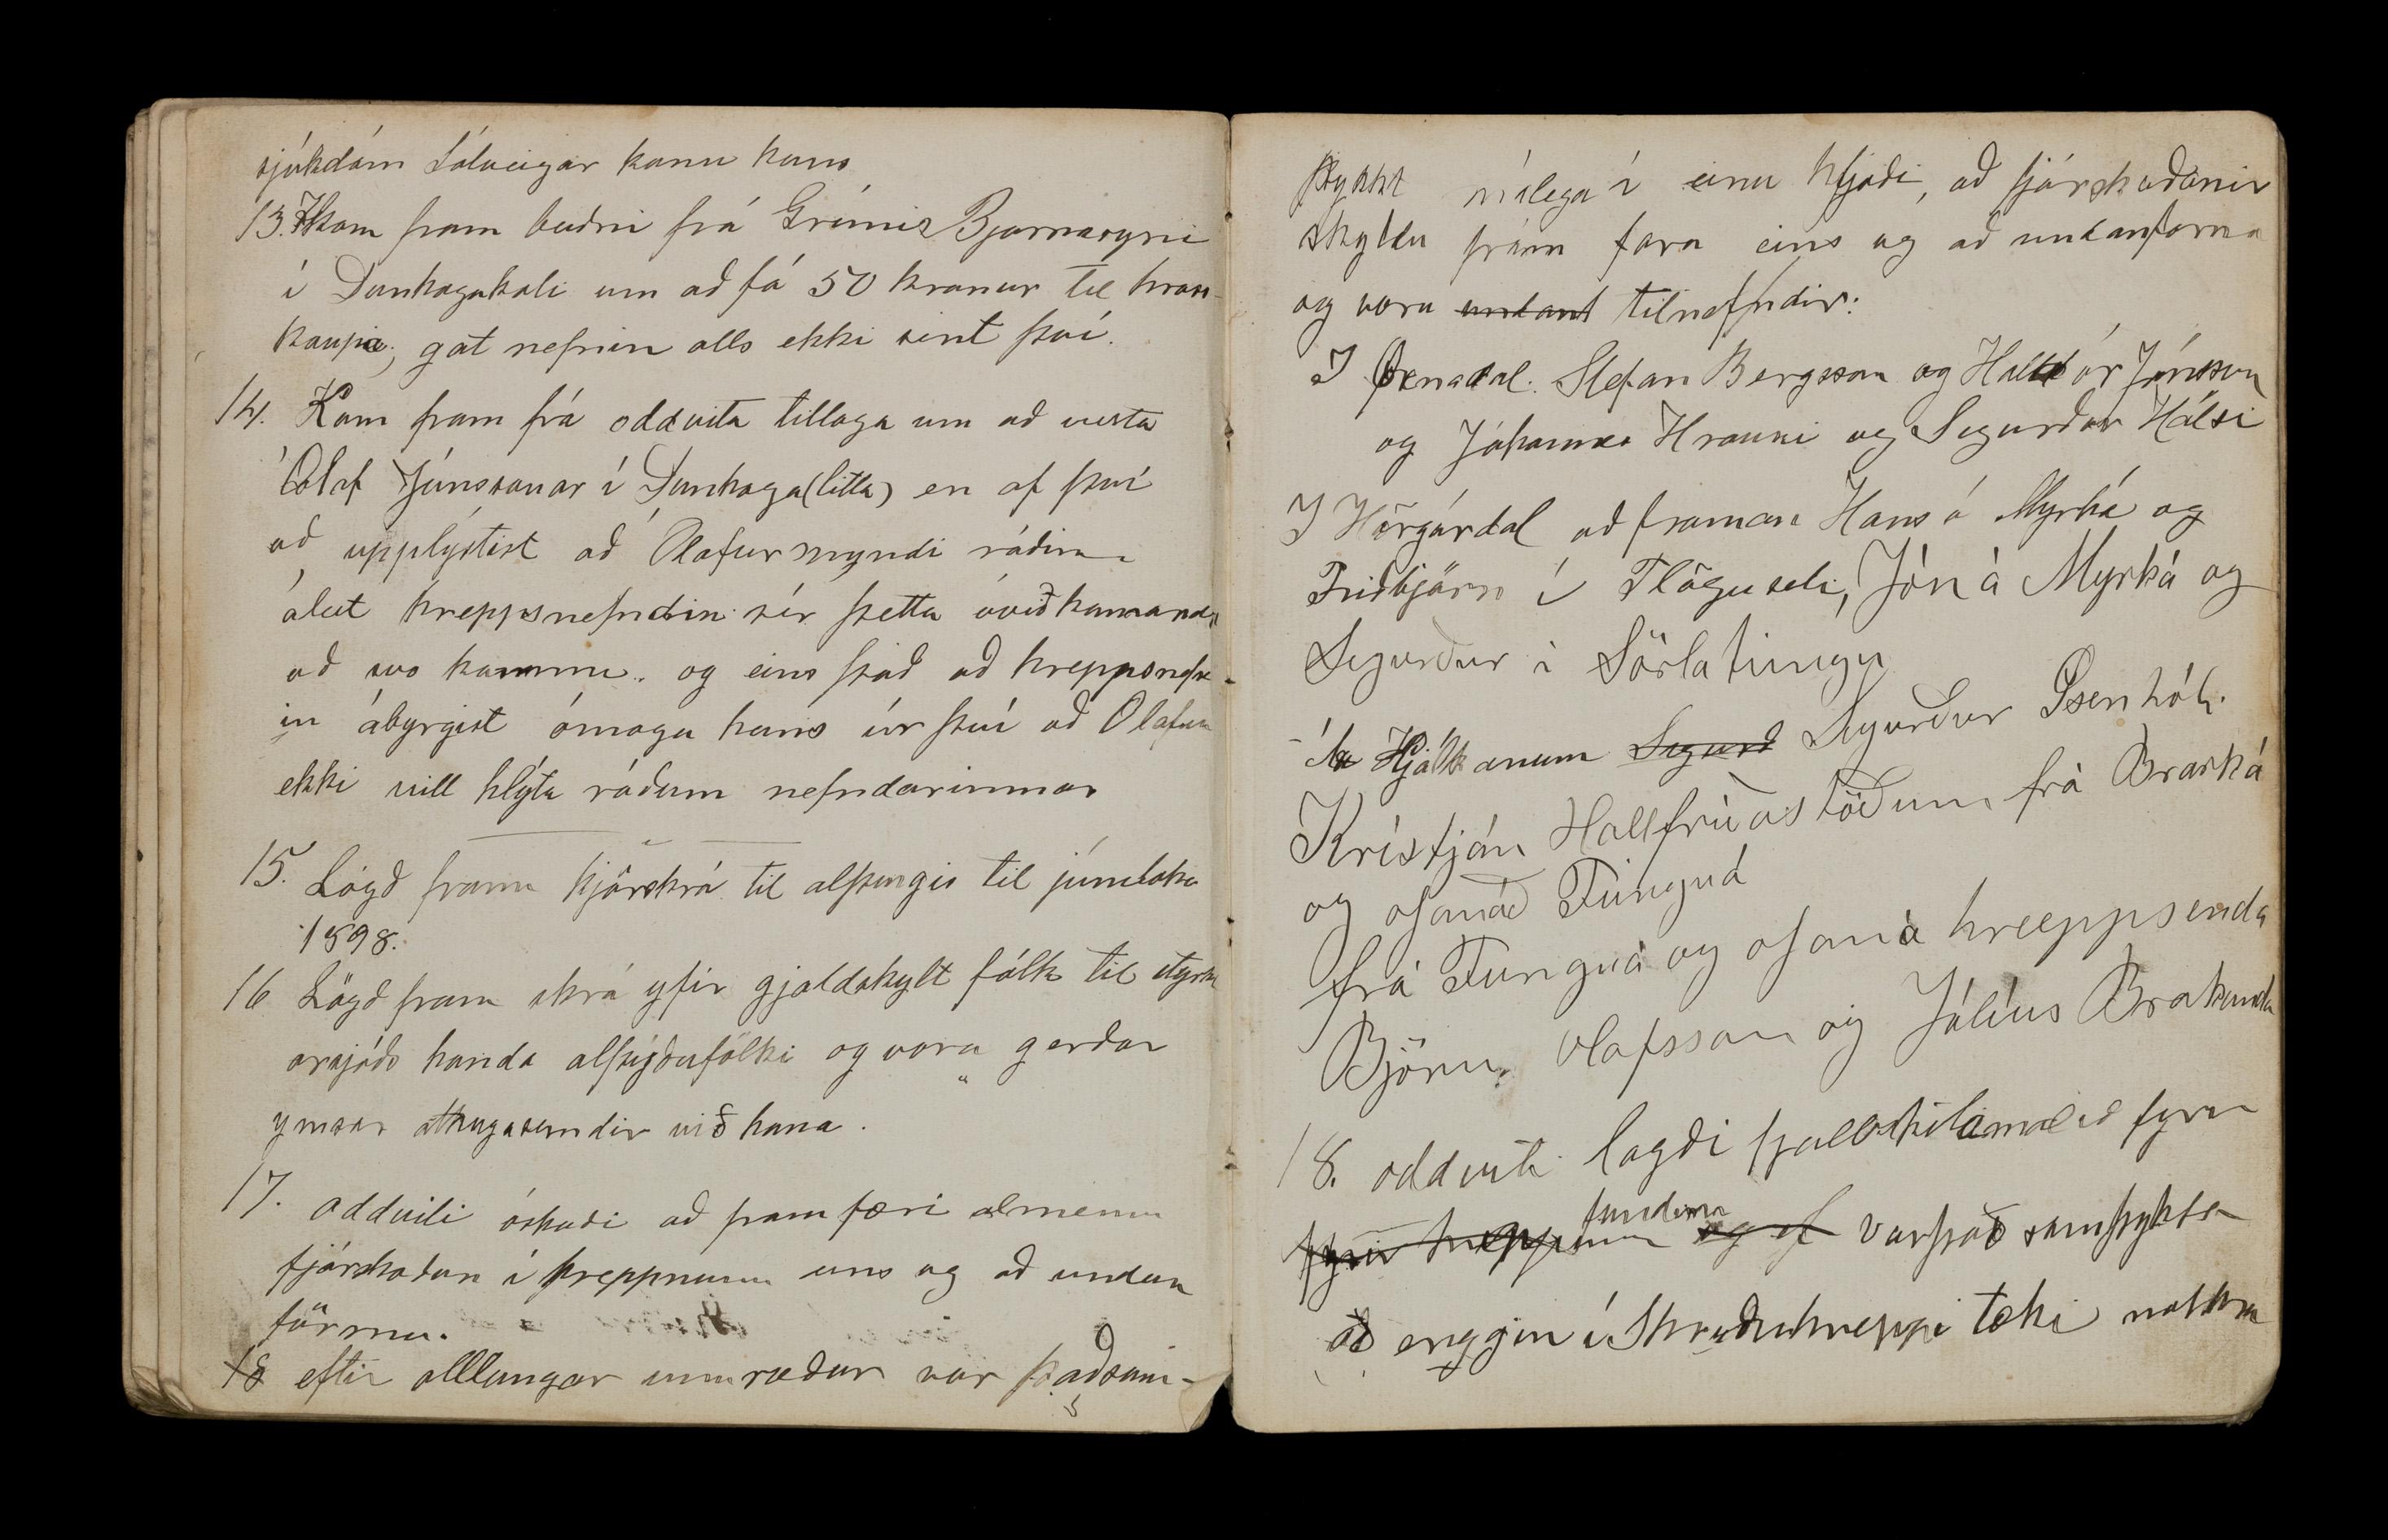 sjúkdóm Sólveigar konu hans
13. Kom fram beðni frá Grími Bjarnasyni
í Dunhagakoti um að fá 50 krónur til hross-
kaupa; gat nefnin alls ekki sint því.
14. Kom fram frá oddvita tillaga um að vista
Ólaf Jónssonar í Dunhaga (litla) en af því
að upplýstist að Ólafur myndi ráðinn
áleit hreppsnefndin sér þetta óviðkomandi
að svo kommnu. og eins það að hreppsnefn-
in ábyrgist ómaga hans úr því að Olafur
ekki vill hlýta ráðum nefndarinnar
15. Lögð fram kjörskrá til alþingis til júníloka
1898.
16 Lögð fram skrá yfir gjaldskylt fólk til styrkt
arsjóðs handa alþýðufólki og voru gerðar
ymsar athugasemdir við hana.
17. oddviti óskaði að fram færi almenn
fjárskoðun í hreppnum eins og að undan
förnu.
18 eftir alllangar umræður var það sam-
þykkt nálega í einu hljóði, að fjárskoðanir
skyldu fram fara eins og að undanförnu
og voru undanf tilnefndir:
I Øxnadal. Stefan Bergsson og Halldór Jónsson
og Jóhannes Hrauni og Sigurður Hálsi
I Hörgárdal að framan Hans á Myrká og
Friðbjörn í Flöguseli, Jón á Myrká og
Sigurður í Sörlatungu
Hjálk anum Sigurð Sigurður Øxenhóli.
Kristján Hallfríðastöðum frá Barká
og ofanað Tunguá
frá Tunguá og ofaná hreeppsenda
Björn Olafsson og Júlíus Brakanda
18. oddviti lagði fjallskilamalið fyrir
fyrir hreppinn fundinn og ef var það samþykkt
að enggin í Skriðuhreppi tæki nokkra